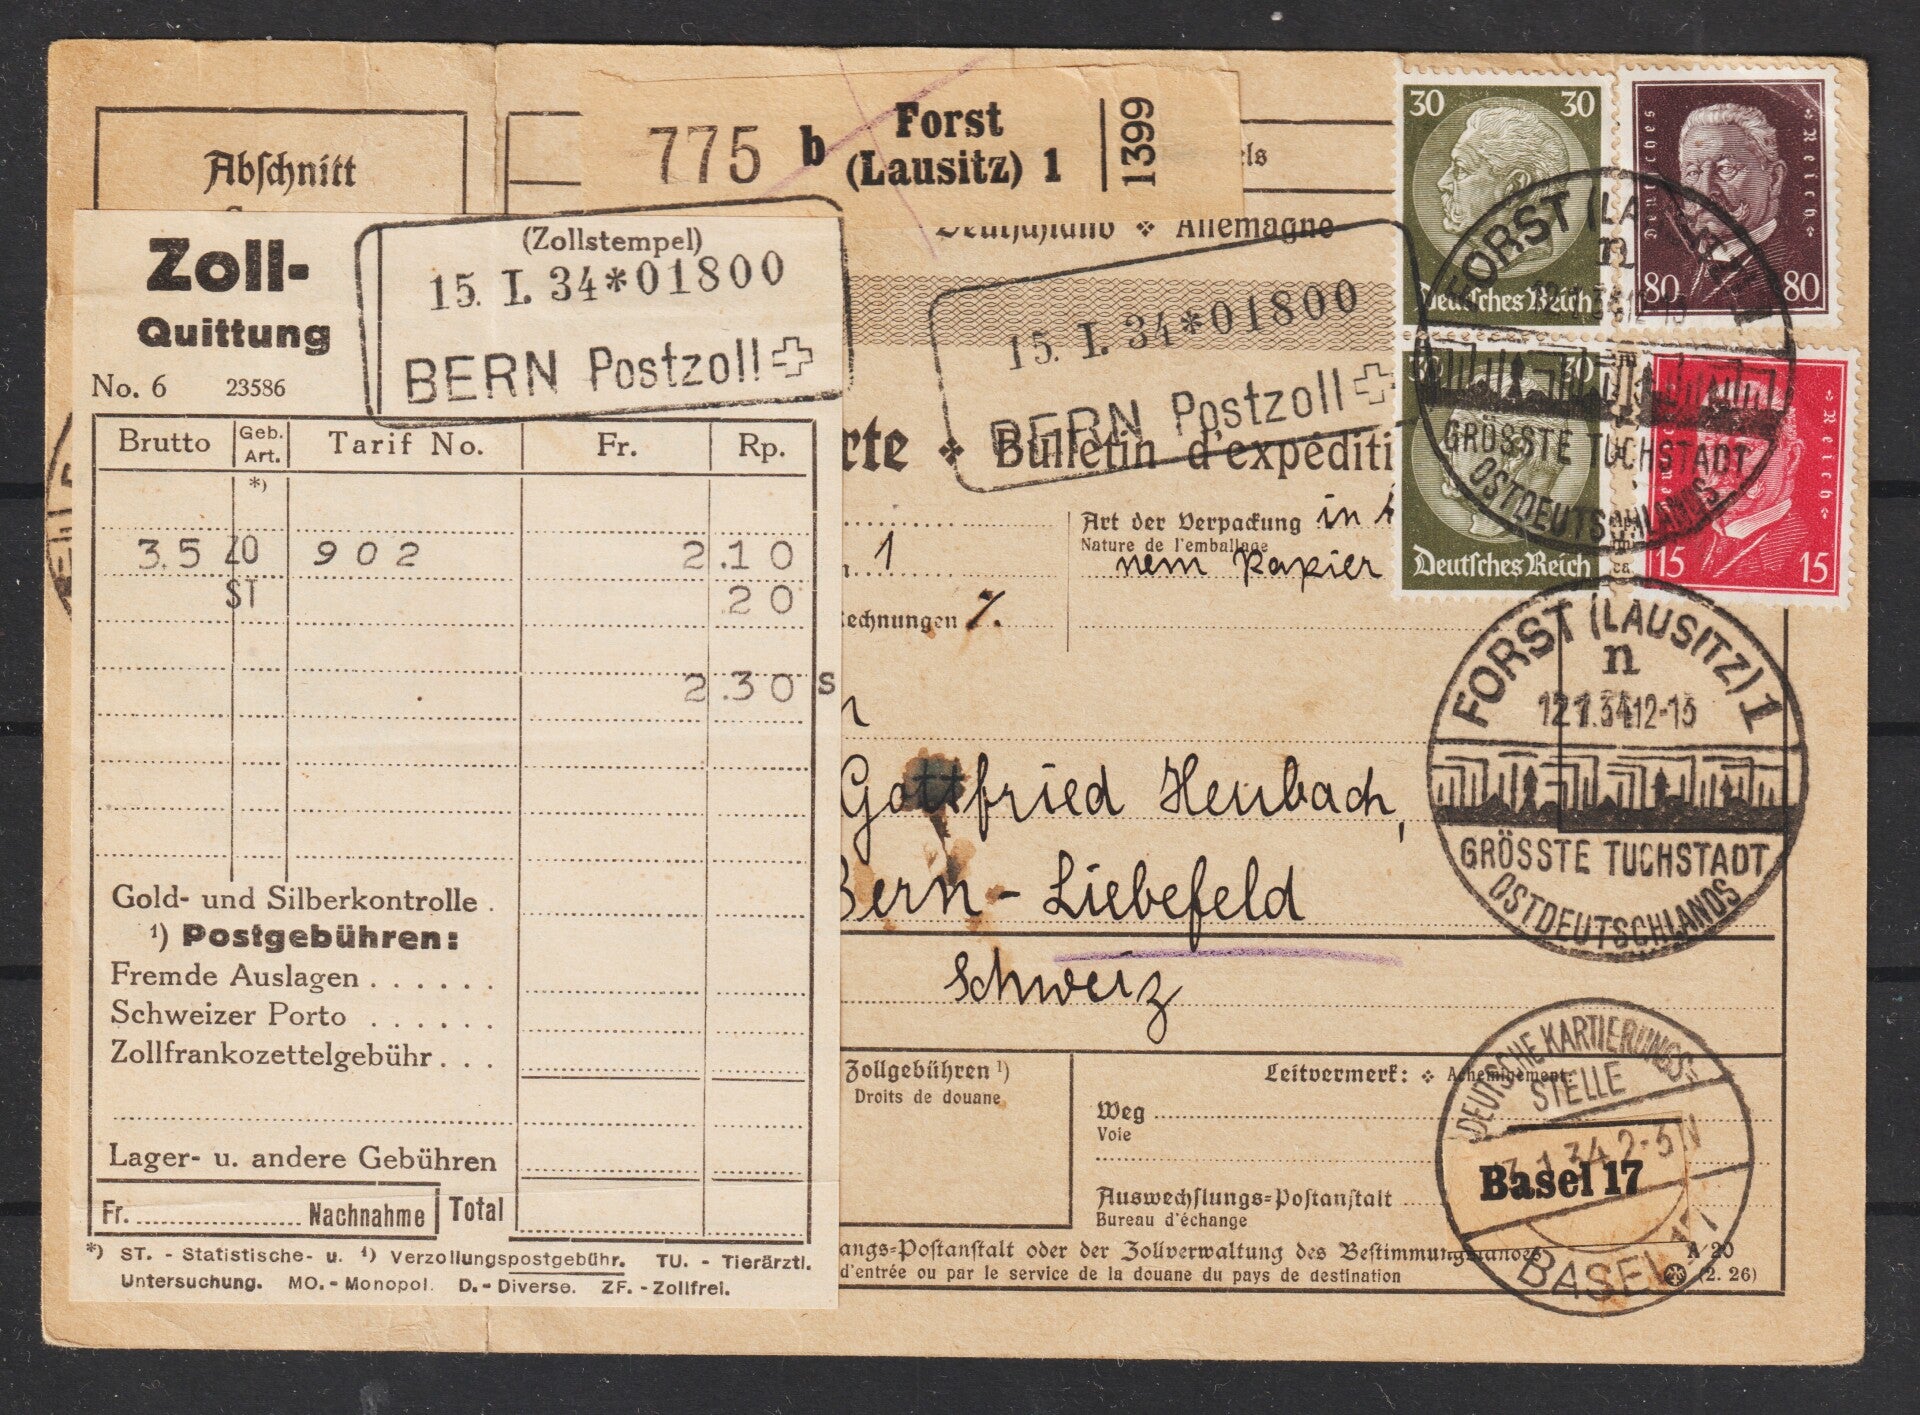 Abschnitt
775 b Forst
(Lausitz) 1
1399
Deutschland ❖ Allemagne
Zoll-
Quittung
No. 6 23586
(Zollstempel)
15. I. 34*01800
BERN Postzoll
15. I. 34*01800
BERN Postzoll
30 30
Deutsches Reich
Deutsches Reich
80 80
30 30
Deutsches Reich
Deutsches Reich
15 15
FORST (LAUSITZ) 1
n
12.1.34.12-15
GRÖSSTE TUCHSTADT
OSTDEUTSCHLANDS
rte ❖ Bulletin d'expéditi
Art der Verpackung in
Nature de l'emballage
nem Papier
1
echnungen %.
Brutto Geb. Art. Tarif No. Fr. Rp.
*)
3.5 ZO 902 2.10
ST .20
2.30 S
Gold- und Silberkontrolle .
¹) Postgebühren:
Fremde Auslagen . . . . . .
Schweizer Porto . . . . . .
Zollfrankozettelgebühr . . .
Lager- u. andere Gebühren
Fr. Nachnahme Total
*) ST. - Statistische- u. ¹) Verzollungspostgebühr. TU. - Tierärztl.
Untersuchung. MO. - Monopol. D. - Diverse. ZF. - Zollfrei.
Gottfried Heubach,
Bern - Liebefeld
Schweiz
FORST (LAUSITZ) 1
n
12.1.34.12-15
GRÖSSTE TUCHSTADT
OSTDEUTSCHLANDS
Zollgebühren ¹)
Droits de douane
Leitvermerk: ❖ Acheminement:
Weg
Voie
Auswechslungs=Postanstalt
Bureau d'échange
DEUTSCHE KARTIERUNGS=
STELLE
3.1.34 2-5 N
Basel 17
BASEL
angs=Postanstalt oder der Zollverwaltung des Bestimmungslandes
d'entrée ou par le service de la douane du pays de destination
A/20
(2. 26)